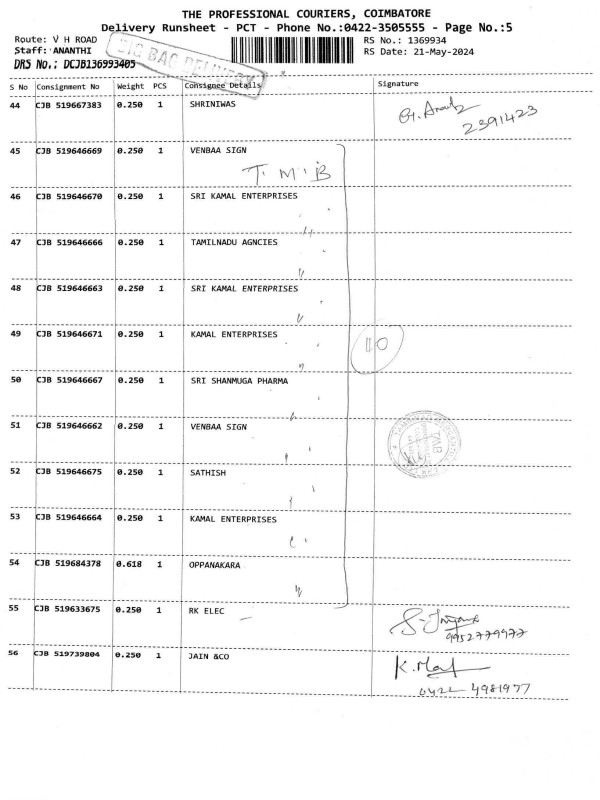 THE PROFESSIONAL COURIERS, COIMBATORE
Delivery Runsheet - PCT - Phone No.:0422-3505555 - Page No.:5
Route: V H ROAD
RS No.: 1369934
Staff: ANANTHI
RS Date: 21-May-2024
BIG BAG DELIVERY
DRS No.: DCJB136993405
S No Consignment No Weight PCS Consignee Details Signature
44 CJB 519667383 0.250 1 SHRINIWAS
2391423
45 CJB 519646669 0.250 1 VENBAA SIGN
T. M. B
46 CJB 519646670 0.250 1 SRI KAMAL ENTERPRISES
47 CJB 519646666 0.250 1 TAMILNADU AGNCIES
48 CJB 519646663 0.250 1 SRI KAMAL ENTERPRISES
49 CJB 519646671 0.250 1 KAMAL ENTERPRISES
50 CJB 519646667 0.250 1 SRI SHANMUGA PHARMA
51 CJB 519646662 0.250 1 VENBAA SIGN
52 CJB 519646675 0.250 1 SATHISH
53 CJB 519646664 0.250 1 KAMAL ENTERPRISES
54 CJB 519684378 0.618 1 OPPANAKARA
55 CJB 519633675 0.250 1 RK ELEC
9952779977
56 CJB 519739804 0.250 1 JAIN &CO
0422 4981977